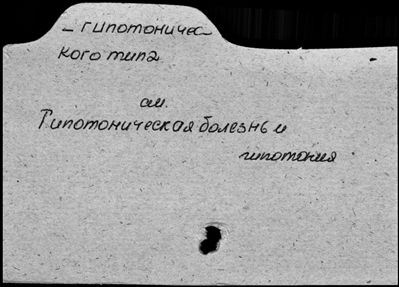 – гипотоничес–
кого типа
см.
Гипотоническая болезнь и
гипотония